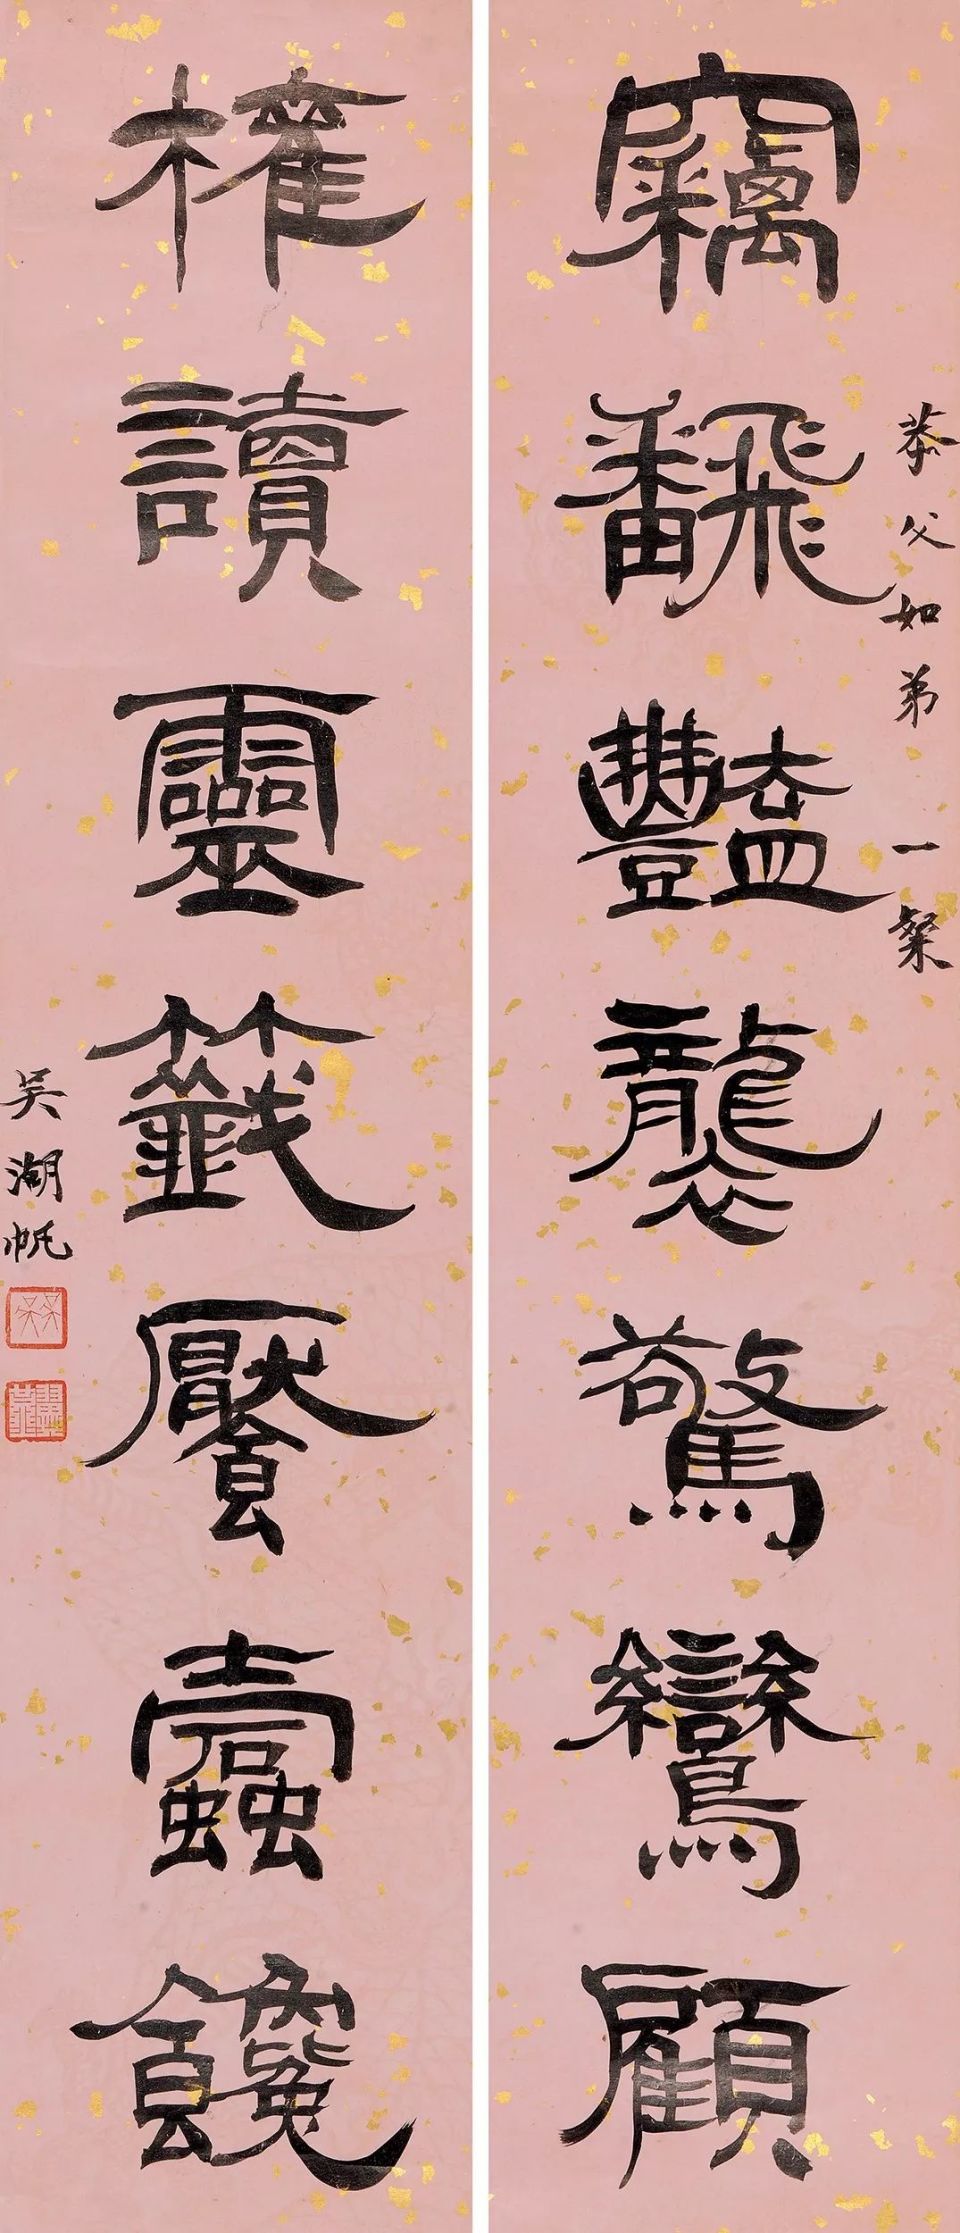 恭父如弟 一粲
竊飜豔襲驚鸞顧
權讀靈籤饜蠹饞
吴湖帆